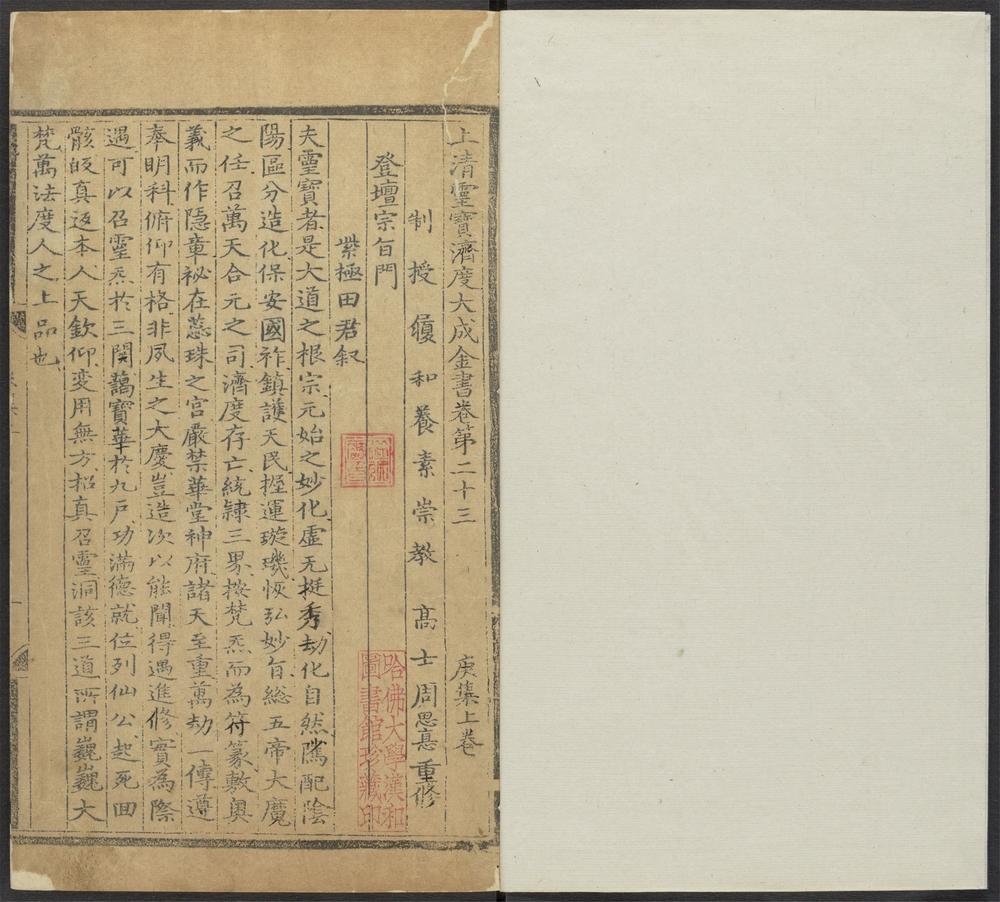 上清靈寶濟度大成金書卷第二十三 庚集上卷
制授履和養素崇教高士周思惪重修
登壇宗旨門
紫極田君叙
夫靈寶者是大道之根宗元始之妙化虛无挺秀劫化自然隲配陰
陽區分造化保安國祚鎮護天民握運璇璣恢弘妙旨総五帝大魔
之任召萬天合元之司濟度存亡統隷三界按梵炁而為符篆敷奧
義而作隱章祕在蕊珠之宮嚴禁華堂神府諸天至重萬劫一傳遵
奉明科俯仰有格非夙生之大慶豈造次以能聞得遇進修實為際
遇可以召靈炁於三関藹寶華於九戶功滿德就位列仙公起死回
骸皈真返本人天欽仰変用無方招真召靈洞該三道所謂巍巍大
梵萬法度人之上品也
哈佛大學漢和
圖書館珍藏印